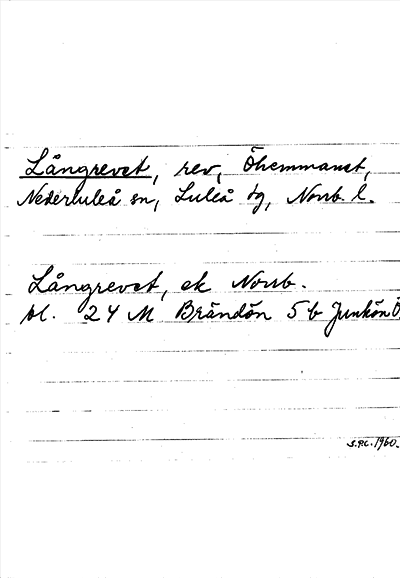 Långrevet, rev, Öhemmanet,
Nederluleå sn, Luleå tg, Norrb. l.
Långrevet, ek Norrb.
bl. 24 M Brändön 5 b Junkön Ö
S.P.C. 1960.